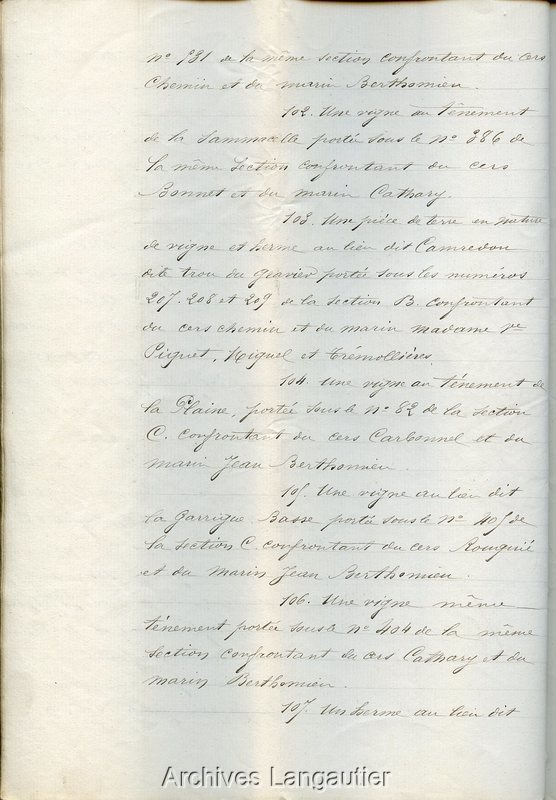 n° 931 de la même section confrontant du cers
Chemin et du marin Berthomieu.
102. Une vigne au tênement
de la portée sous le n° 386 de
la même section confrontant du cers
Bonnet et du marin Cathary.
103. Une pièce de terre en nature
de vigne et herme au lieu dit Camredon
trou du portée sous les numéros
207. 208 et 209 de la section B. confrontant
du cers chemin et du marin madame Vve
Piquet, Miquel et Trémollières
104. Une vigne au ténement de
la Plaine, portée sous le n° 82 de la section
C. confrontant du cers Carbonnel et du
marin Jean Berthomieu.
105. Une vigne au lieu dit
la Garrigue Basse portée sous le N° 405 de
la section C. confrontant du cers
et du marin Jean Berthomieu.
106. Une vigne même
ténement portée sous le n° 404 de la même
section confrontant du cers Cathary et du
marin Berthomieu.
107. Un herme au lieu dit
Archives Langautier